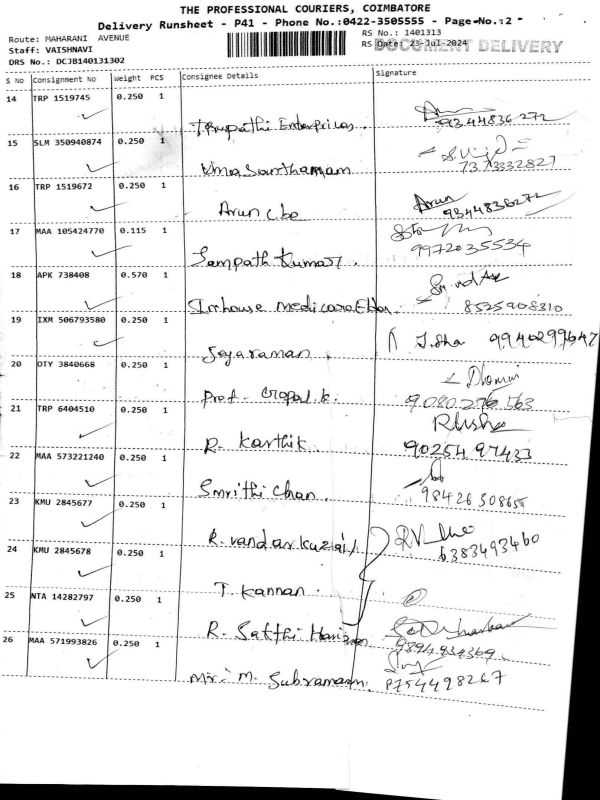 THE PROFESSIONAL COURIERS, COIMBATORE
Delivery Runsheet - P41 - Phone No.:0422-3505555 - Page No.:2 -
Route: MAHARANI AVENUE
RS No.: 1401313
Staff: VAISHNAVI
RS Date: 23-Jul-2024
DOCUMENT DELIVERY
DRS No.: DCJB140131302
S No Consignment No Weight PCS Consignee Details Signature
14 TRP 1519745 0.250 1
Tirupathi Enterprices. 9344836272
15 SLM 350940874 0.250 1
Uma Santhamam 7373332827
16 TRP 1519672 0.250 1
Arun cbe Arun 9344836272
17 MAA 105424770 0.115 1
Sampath Kumar. 9972035534
18 APK 738408 0.570 1
Inhouse medicare 8525908310
19 IXM 506793580 0.250 1
Jayaraman J.sha 9940299647
20 OTY 3840668 0.250 1
Prof. Gopal.k.
21 TRP 6404510 0.250 1
R. Karthik. 9025497433
22 MAA 573221240 0.250 1
Smrithi Chan. 9842630865
23 KMU 2845677 0.250 1
6383493460
24 KMU 2845678 0.250 1
T. Kannan.
25 NTA 14282797 0.250 1
R. Sakthi 9894934369
26 MAA 571993826 0.250 1
Mr. M. Subramaam. 8754498267